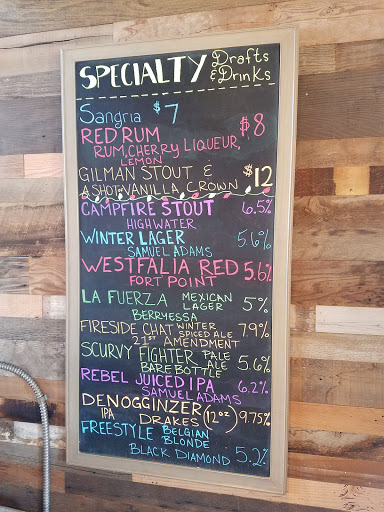 SPECIALTY Drafts & Drinks
Sangria $7
RED RUM $8
RUM, CHERRY LIQUEUR,
LEMON
GILMAN STOUT & $12
A SHOT VANILLA CROWN
CAMPFIRE STOUT 6.5%
HIGHWATER
WINTER LAGER 5.6%
SAMUEL ADAMS
WESTFALIA RED 5.6%
FORT POINT
LA FUERZA MEXICAN LAGER 5%
BERRYESSA
FIRESIDE CHAT WINTER SPICED ALE 7.9%
21ST AMENDMENT
SCURVY FIGHTER PALE ALE 5.6%
BARE BOTTLE
REBEL JUICED IPA 6.2%
SAMUEL ADAMS
DENOGGINZER (12oz) 9.75%
IPA DRAKES
FREESTYLE BELGIAN BLONDE
BLACK DIAMOND 5.2%